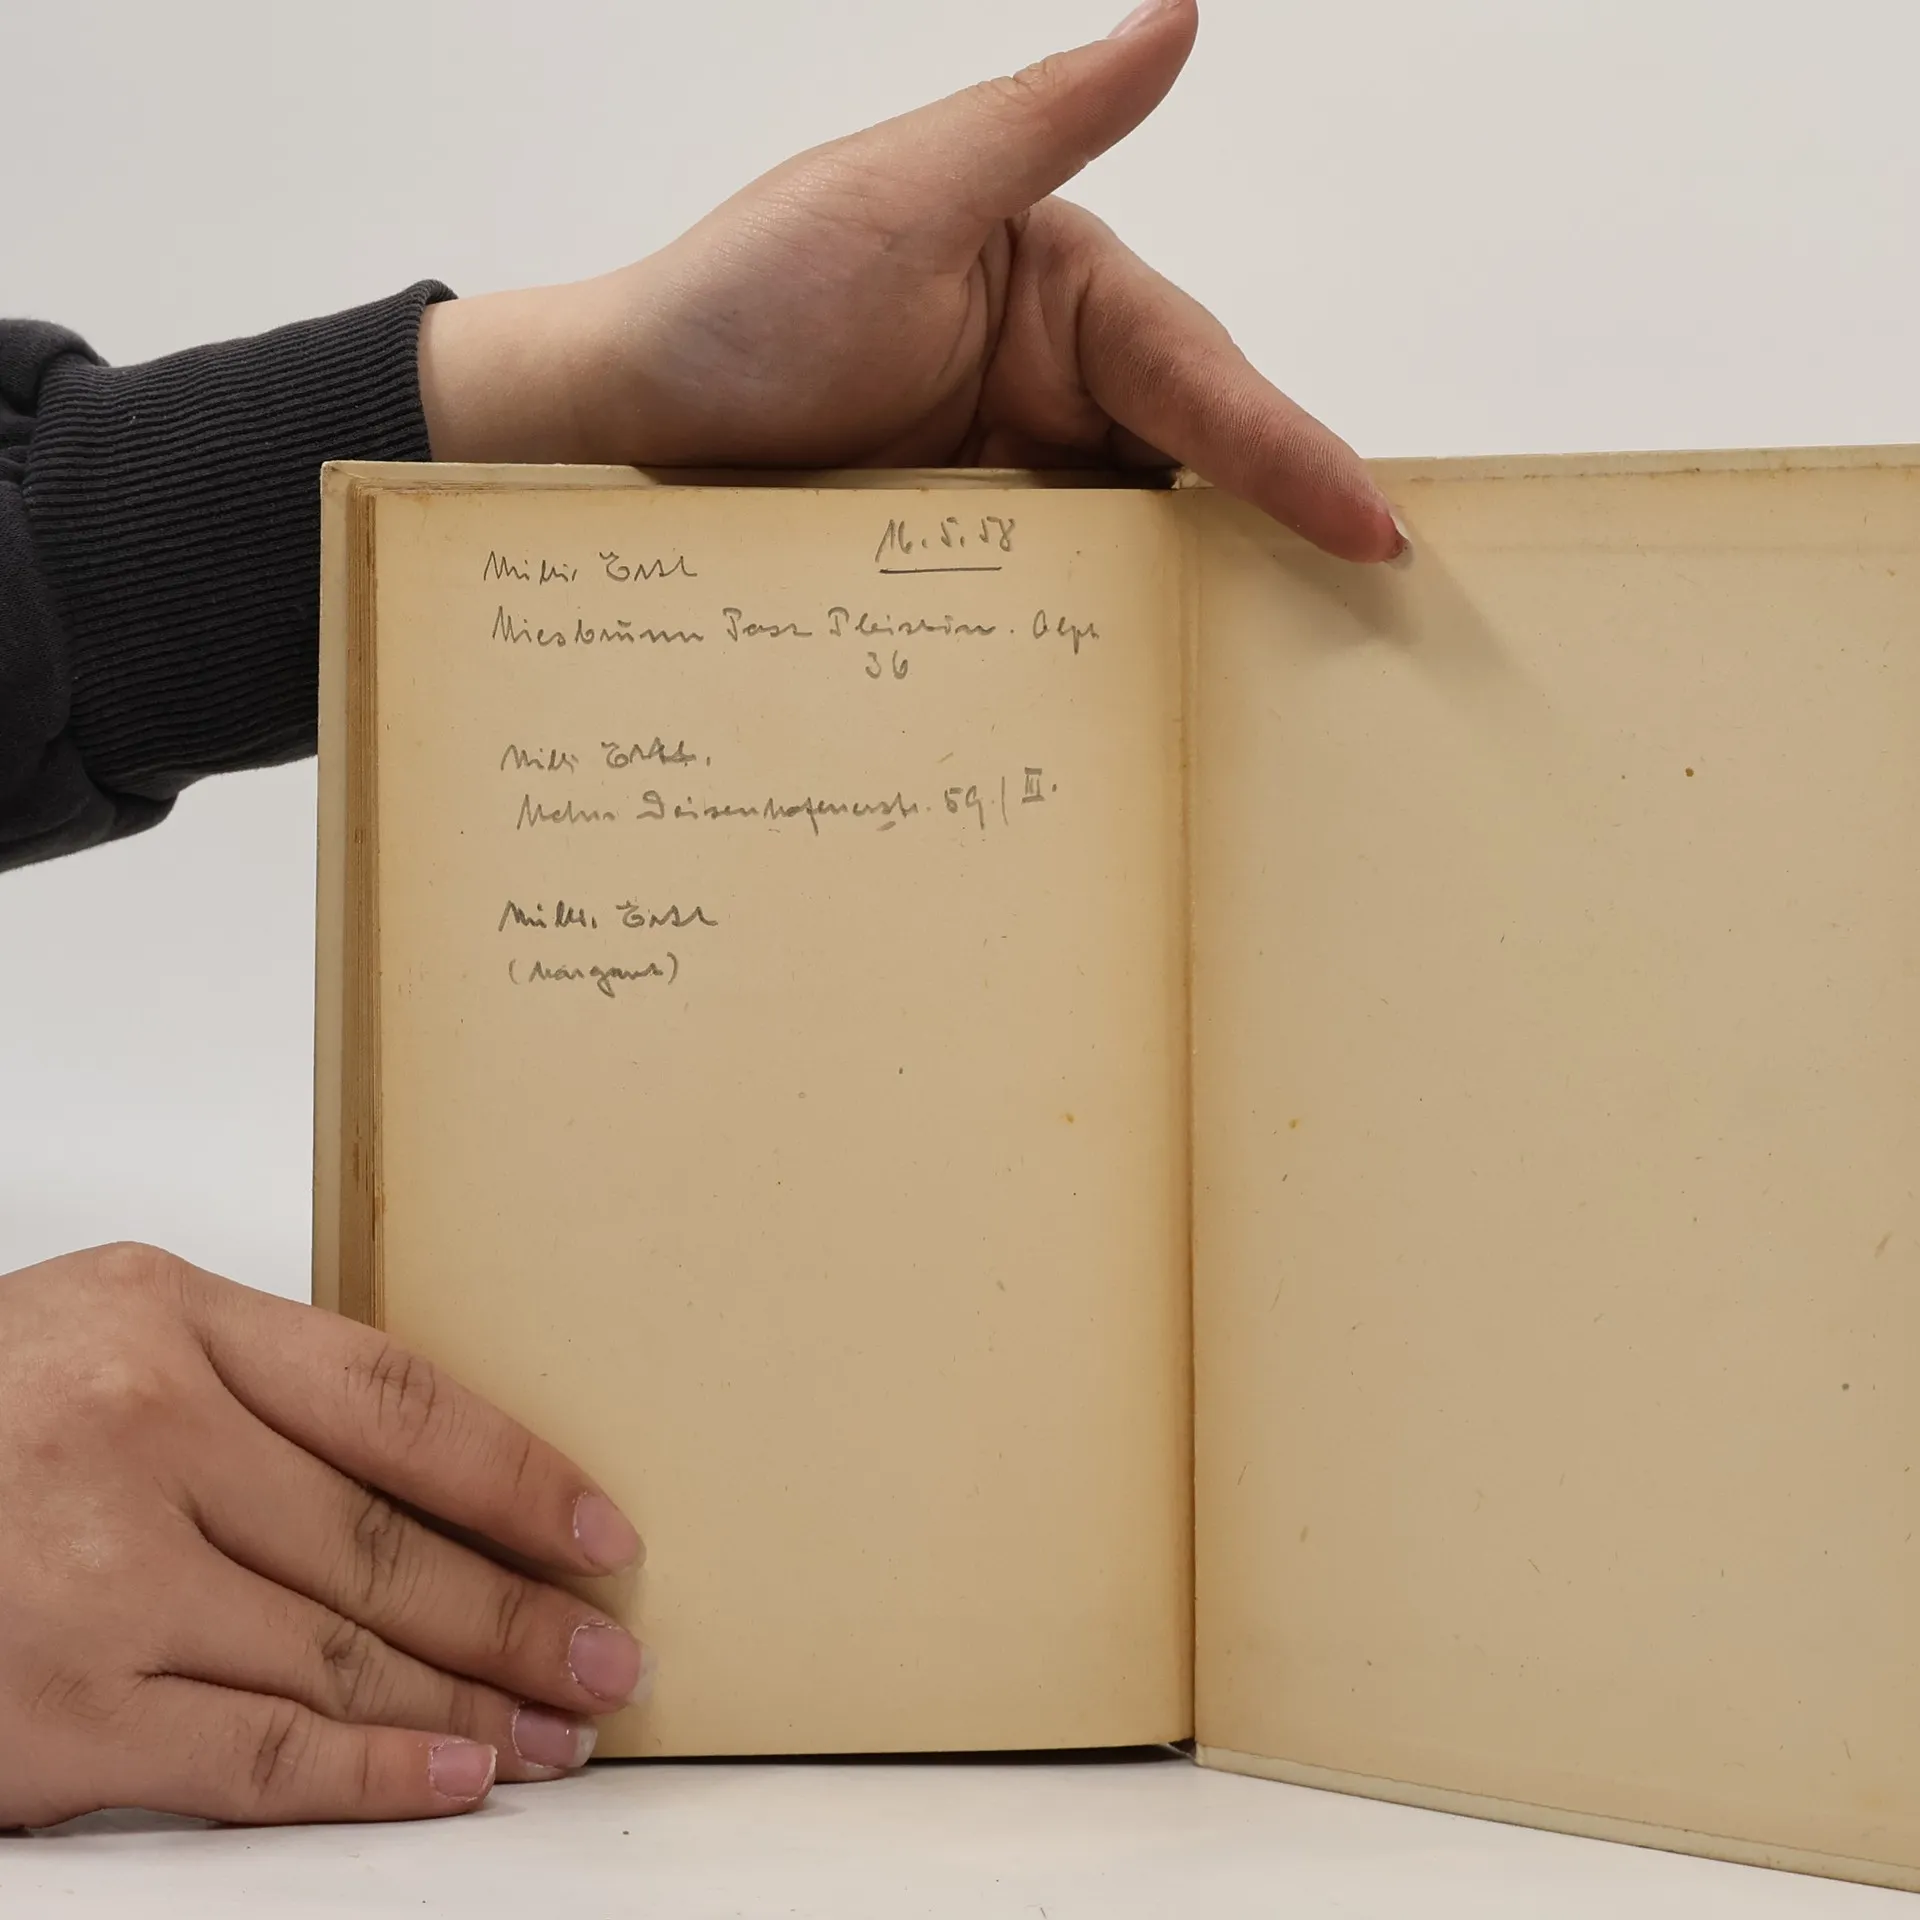 16.5.58
Milli Ertl
Miesbrunn Post Pleistein. Opf.
36
Milli Ertl.
Mchn Deisenhofenerstr. 59 / III.
Milli Ertl
(Margaret)